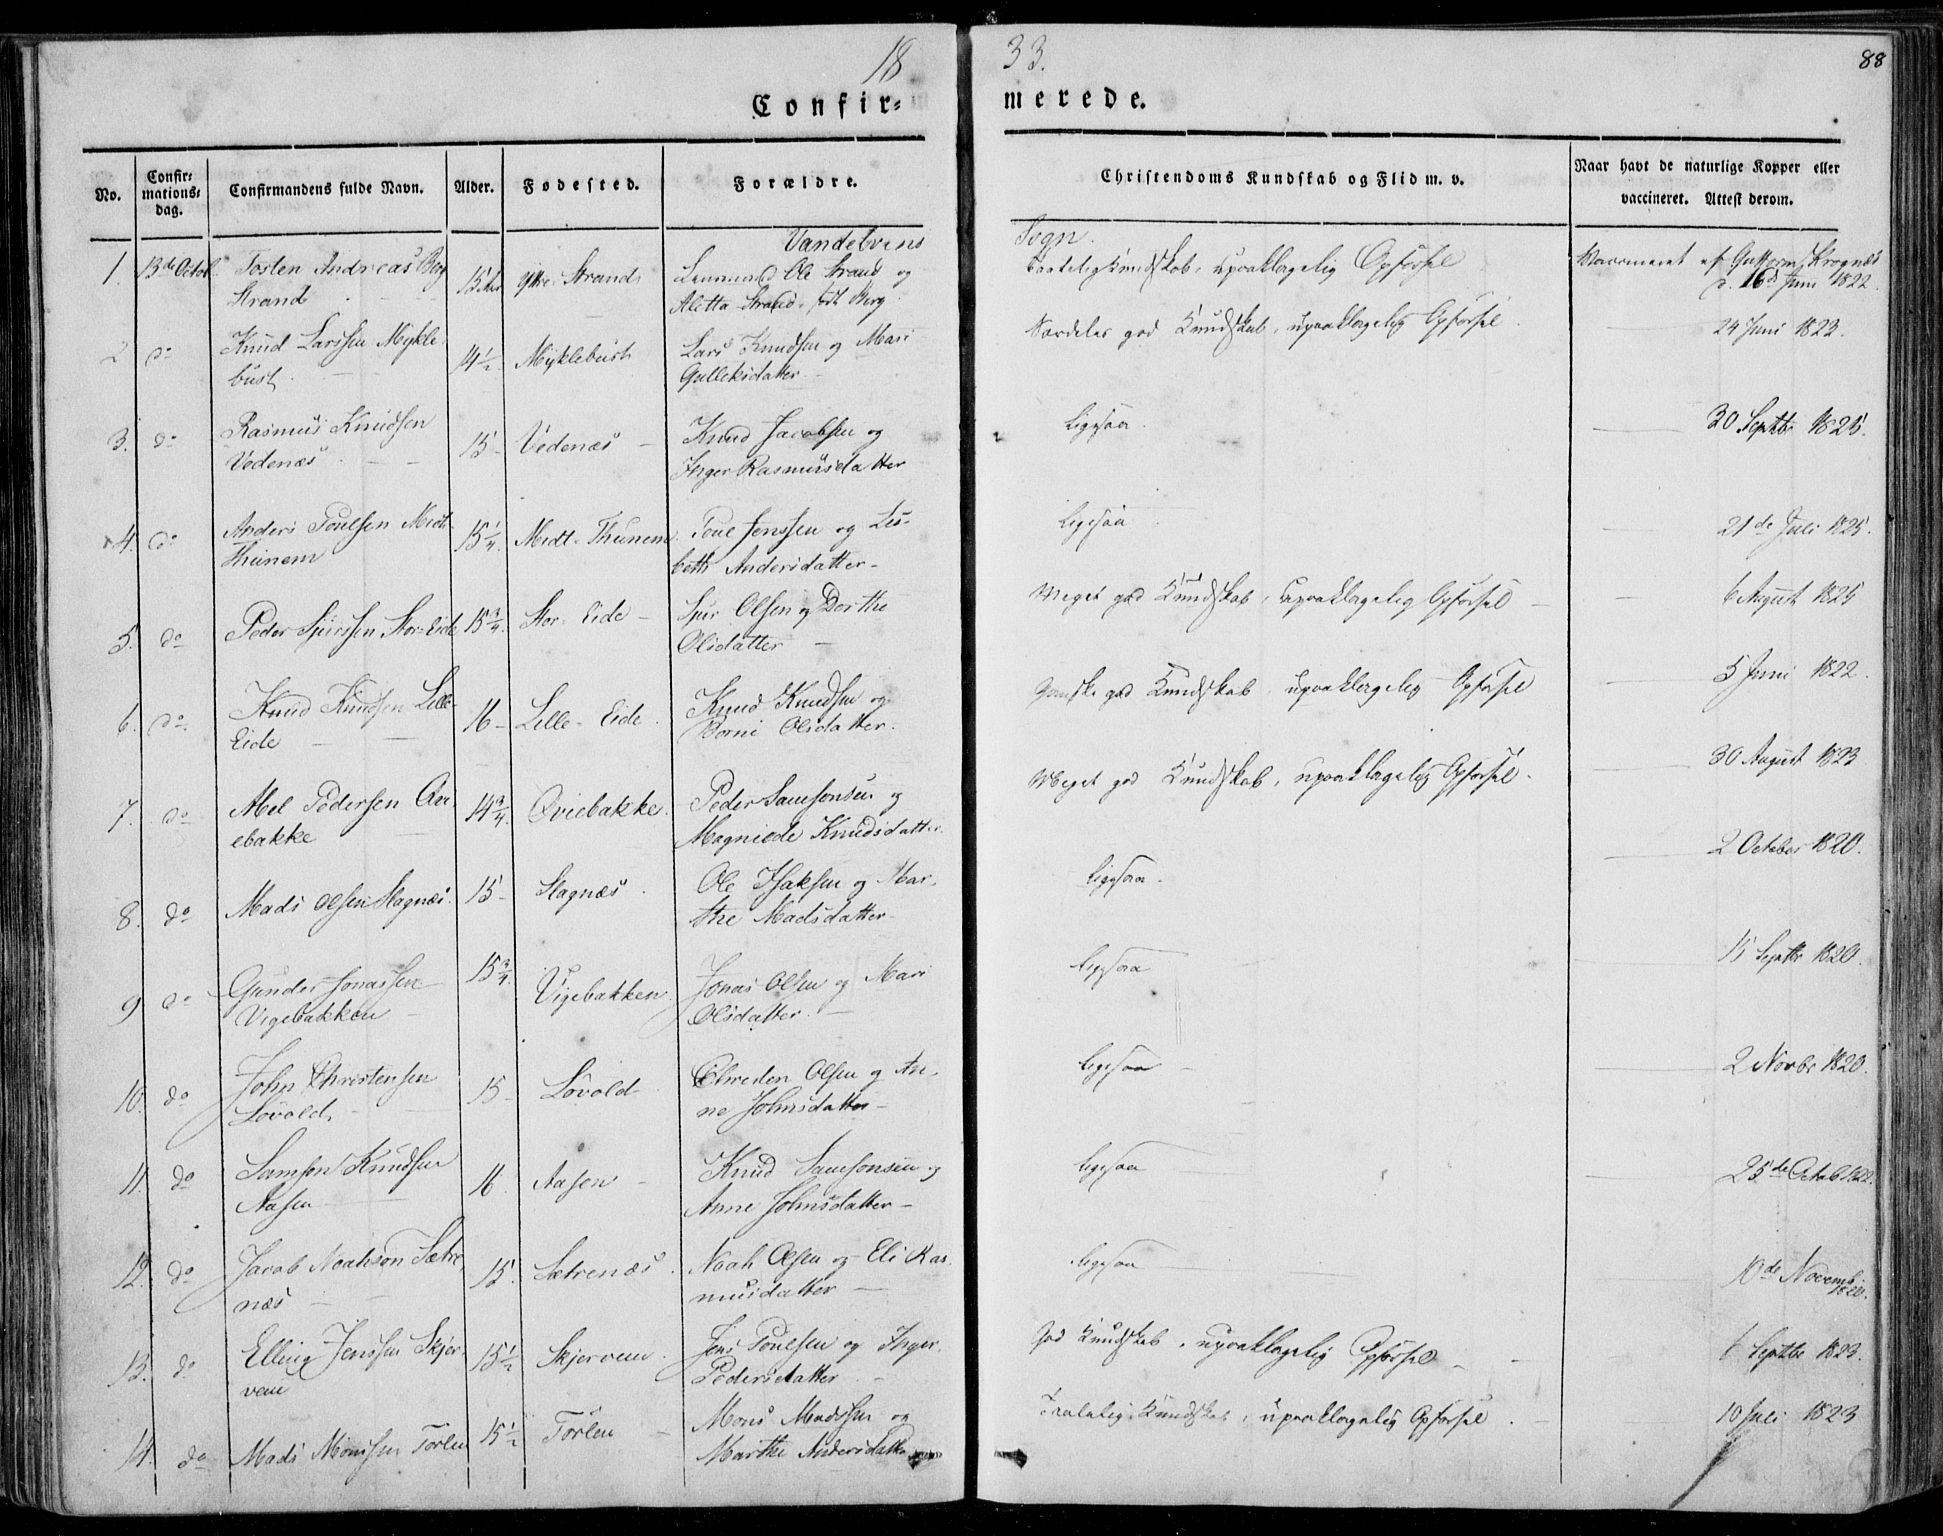 18 33. 88
Confir= merede.
No. Confirmations= dag. Confirmandens fulde Navn. Alder. Fødested. Forældre. Christendoms Kundskab og Flid m. v. Naar havt de naturlige Kopper eller vaccineret. Attest derom.
Vandelvens Sogn.
1. 13de Octob. Tosten Andreas Berg 15 ytre Strand Ole Strand og Kundskab, upaaklagelig Opførsel Vaccineret af Guttorm Krognæs
Strande Aletta Strand, født Berg d. 16de Juni 1822.
2 do Knud Larssen Mykle- 14½ Myklebust Lars Knudsen og Mari Særdeles god Kundskab, upaaklagelig Opførsel. 24 Juni 1823.
bust. Gulleksdatter
3. do Rasmus Knudsen 15 Vedenæs Knud Jacobsen og Ligesaa. 30 Septbr 1825.
Vedenæs Inger Rasmusdatter
4. do Anders Poulsen Midt- 15¼. Midt-Thunem Poul Jenssen og Lis- Ligesaa 21de Juli 1825.
thunem beth Andersdatter
5. do Peder Sjurssen Stor-Eide 15¾. Stor-Eide Sjur Olsen og Dorthe Meget god Kundskab, upaaklagelig Opførsel 6 August 1825
Olsdatter
6. do Knud Knudsen Lille- 16 Lille-Eide Knud Knudsen og Ganske god Kundskab, upaaklagelig Opførsel 5 Juni 1822.
Eide Borni Olsdatter.
7. do Abel Pedersen 14¾. Qviebakke. Peder Samsonsen og Meget god Kundskab, upaaklagelig Opførsel. 30 August 1823
ebakke Magnilde Knudsdatter.
8. do Mads Olsen Stagnæs. 15 Stagnæs. Ole Isaksen og Mar- Ligesaa. 2 October 1820.
the Madsdatter
9 do Gunder Jonassen 15¾. Vigebakken. Jonas Olsen og Mari Ligesaa 15 Septbr 1820.
Vigebakken Olsdatter.
10. do John Christensen 15 Løvold Christen Olsen og An- Ligesaa 2 Novbr 1820.
Løvold. ne Johnsdatter
11. do Samson Knudsen 16. Aasen Knud Samsonsen og Ligesaa 25de Octob 1822.
Aasen Anne Johnsdatter
12. do Jacob Noahson Sætre- 15. Sætrenæs. Noah Olsen og Eli Ras- Ligesaa 10de Novemb.
næs musdatter 1820.
13. do Elling Jenssen Skjer- 15½ Skjervem. Jens Poulsen og Inger God Kundskab, upaaklagelig Opførsel 6 Septbr 1823.
vem Pedersdatter.
14. do Mads Monssen Torlen 15½ Torlen Mons Madssen og Kundskab, upaaklagelig Opførsel. 10 Juli 1823
Marthe Andersdatter